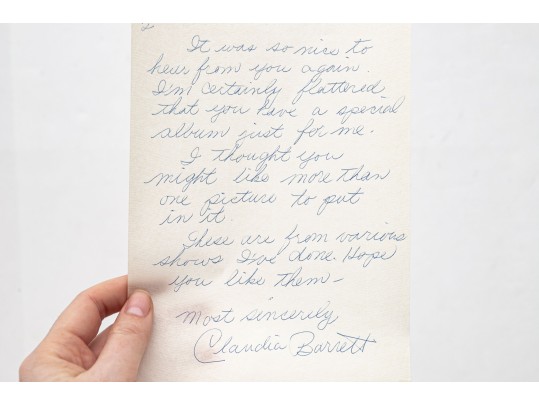 It was so nice to
hear from you again.
I'm certainly flattered
that you have a special
album just for me.
I thought you
might like more than
one picture to put
in it.
These are from various
shows I've done. Hope
you like them-
Most sincerely
Claudia Barrett